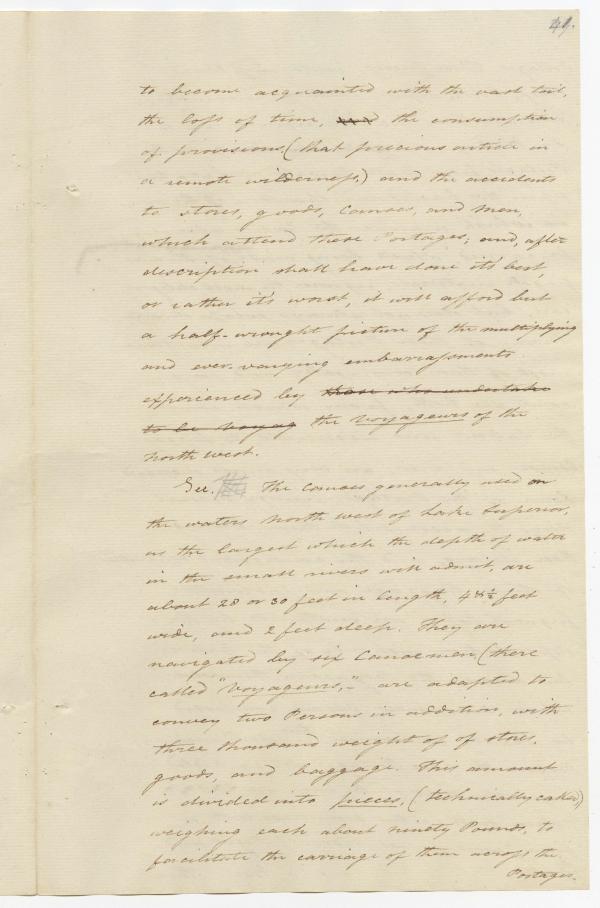 49.
to become acquainted with the vast toil,
the loss of time, and the consumption
of provisions, (that precious article in
a remote wilderness,) and the accidents
to stores, goods, Canoes, and men,
which attend these Portages; and, after
description shall have done it's best,
or rather it's worst, it will afford but
a half-wrought picture of the multiplying
and ever-varying embarrassments
experienced by those who undertake
to be voyag the voyageurs of the
north west.
The canoes generally used on
the waters north west of Lake Superior,
as the largest which the depth of water
in the small rivers will admit, are
about 28 or 30 feet in length, 4 ½ feet
wide, and 2 feet deep. They are
navigated by six Canoemen, (there
called "voyageurs," are adapted to
convey two Persons in addition, with
three thousand weight of of stores,
goods, and baggage. This amount
is divided into pieces, (technically called,)
weighing each about ninety Pounds, to
facilitate the carriage of them across the
Portages.